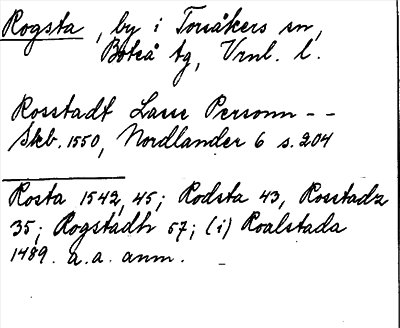 Rogsta, by i Torsåkers sn,
Boteå tg, Vrnl. l.
Rosstadt Lasse Personn - -
Skb. 1550, Nordlander 6 s. 204
Rosta 1542, 45; Rodsta 43, Rosstadz
35; Rogstadh 57; (i) Roalstada
1489. a. a. anm. -